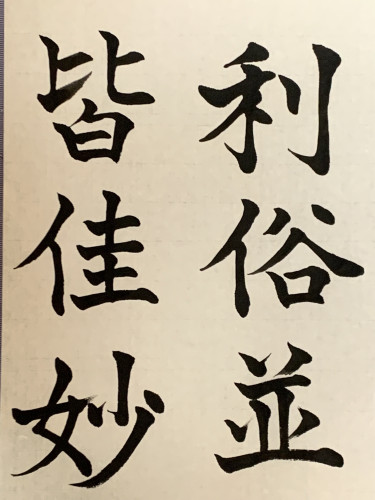 利俗並
皆佳妙